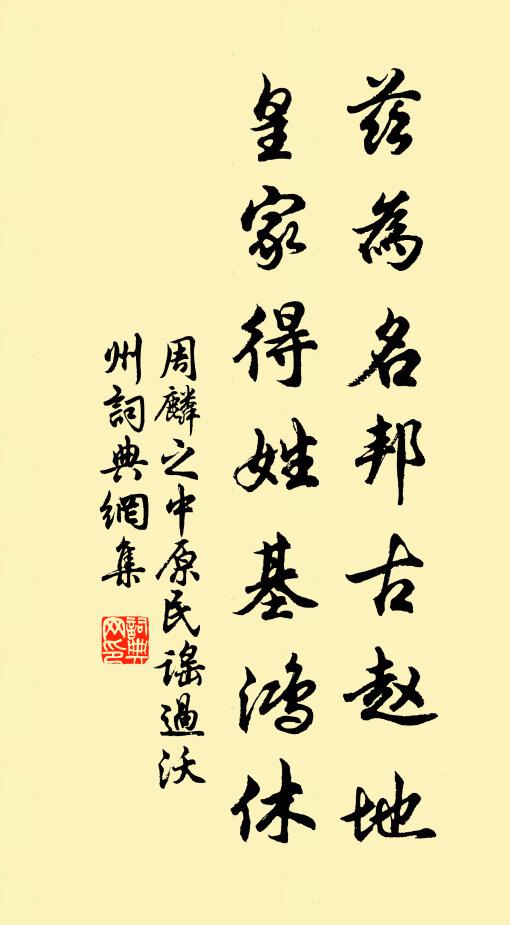 兹為名邦古赵地
皇家得姓基鸿休
周麟之中原民谣過沃
州詞典網集
詞典网印